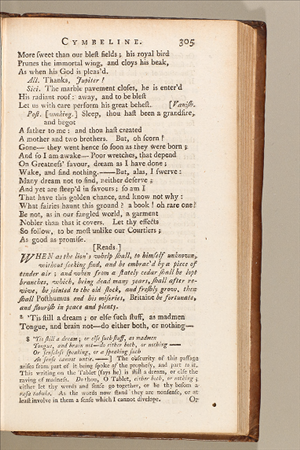 CYMBELINE. 305
More sweet than our blest fields; his royal bird
Prunes the immortal wing, and cloys his beak,
As when his God is pleas'd.
All. Thanks, Jupiter!
Sici. The marble pavement closes, he is enter'd
His radiant roof: away, and to be blest
Let us with care perform his great behest. [Vanish.
Post. [waking.] Sleep, thou hast been a grandsire,
and begot
A father to me: and thou hast created
A mother and two brothers. But, oh scorn!
Gone— they went hence so soon as they were born;
And so I am awake— Poor wretches, that depend
On Greatness' favour, dream as I have done;
Wake, and find nothing.——But, alas, I swerve:
Many dream not to find, neither deserve;
And yet are steep'd in favours; so am I
That have this golden chance, and know not why:
What fairies haunt this ground? a book! oh rare one!
Be not, as in our fangled world, a garment
Nobler than that it covers. Let thy effects
So follow, to be most unlike our Courtiers;
As good as promise.
[Reads.]
WHEN as the lion's whelp shall, to himself unknown,
without seeking find, and be embrac'd by a piece of
tender air; and when from a stately cedar shall be lopt
branches, which, being dead many years, shall after re-
vive, be jointed to the old stock, and freshly grow, then
shall Posthumus end his miseries, Britaine be fortunate,
and flourish in peace and plenty.
8 'Tis still a dream; or else such stuff, as madmen
Tongue, and brain not—do either both, or nothing—
8 'Tis still a dream; or else such stuff, as madmen
Tongue, and brain not—do either both, or nothing ——
Or senseless speaking, or a speaking such
As sense cannot untie. ——] The obscurity of this passage
arises from part of it being spoke of the prophecy, and part to it.
This writing on the Tablet (says he) is still a dream, or else the
raving of madness. Do thou, O Tablet, either both, or nothing;
either let thy words and sense go together, or be thy bosom a
rasa tabula. As the words now stand they are nonsense, or at
least involve in them a sense which I cannot develope. Or